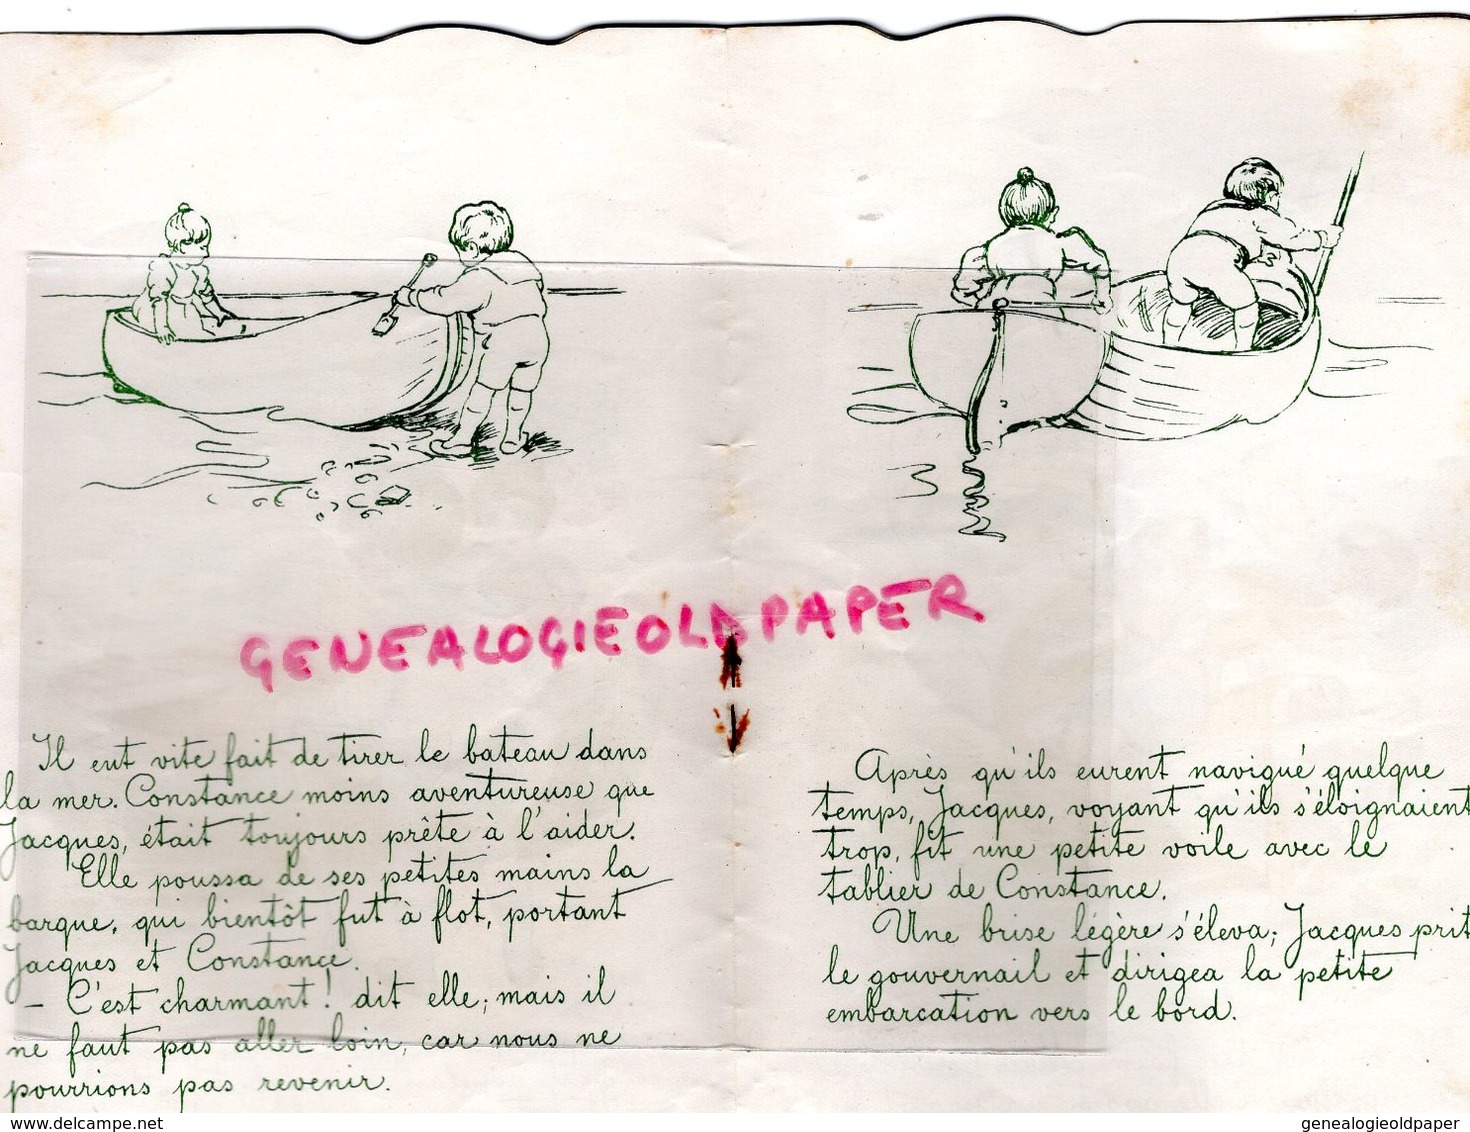 GENEALOGIEOLDPAPER
Il eut vite fait de tirer le bateau dans
la mer. Constance moins aventureuse que
Jacques, était toujours prête à l'aider.
Elle poussa de ses petites mains la
barque, qui bientôt fut à flot, portant
Jacques et Constance.
— C'est charmant! dit elle; mais il
ne faut pas aller loin, car nous ne
pourrions pas revenir.
Après qu'ils eurent navigué quelque
temps, Jacques, voyant qu'ils s'éloignaient
trop, fit une petite voile avec le
tablier de Constance.
Une brise légère s'éleva; Jacques prit
le gouvernail et dirigea la petite
embarcation vers le bord.
delcampe.net
genealogieoldpaper